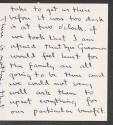 take to get in there
before it was too dark
is at two o'clock. if
we took that I am
afraid that the Governor
would feel hurt for
the family are all
going to be there and
we could not very
well ask them to
upset everything for
our particular benefit.